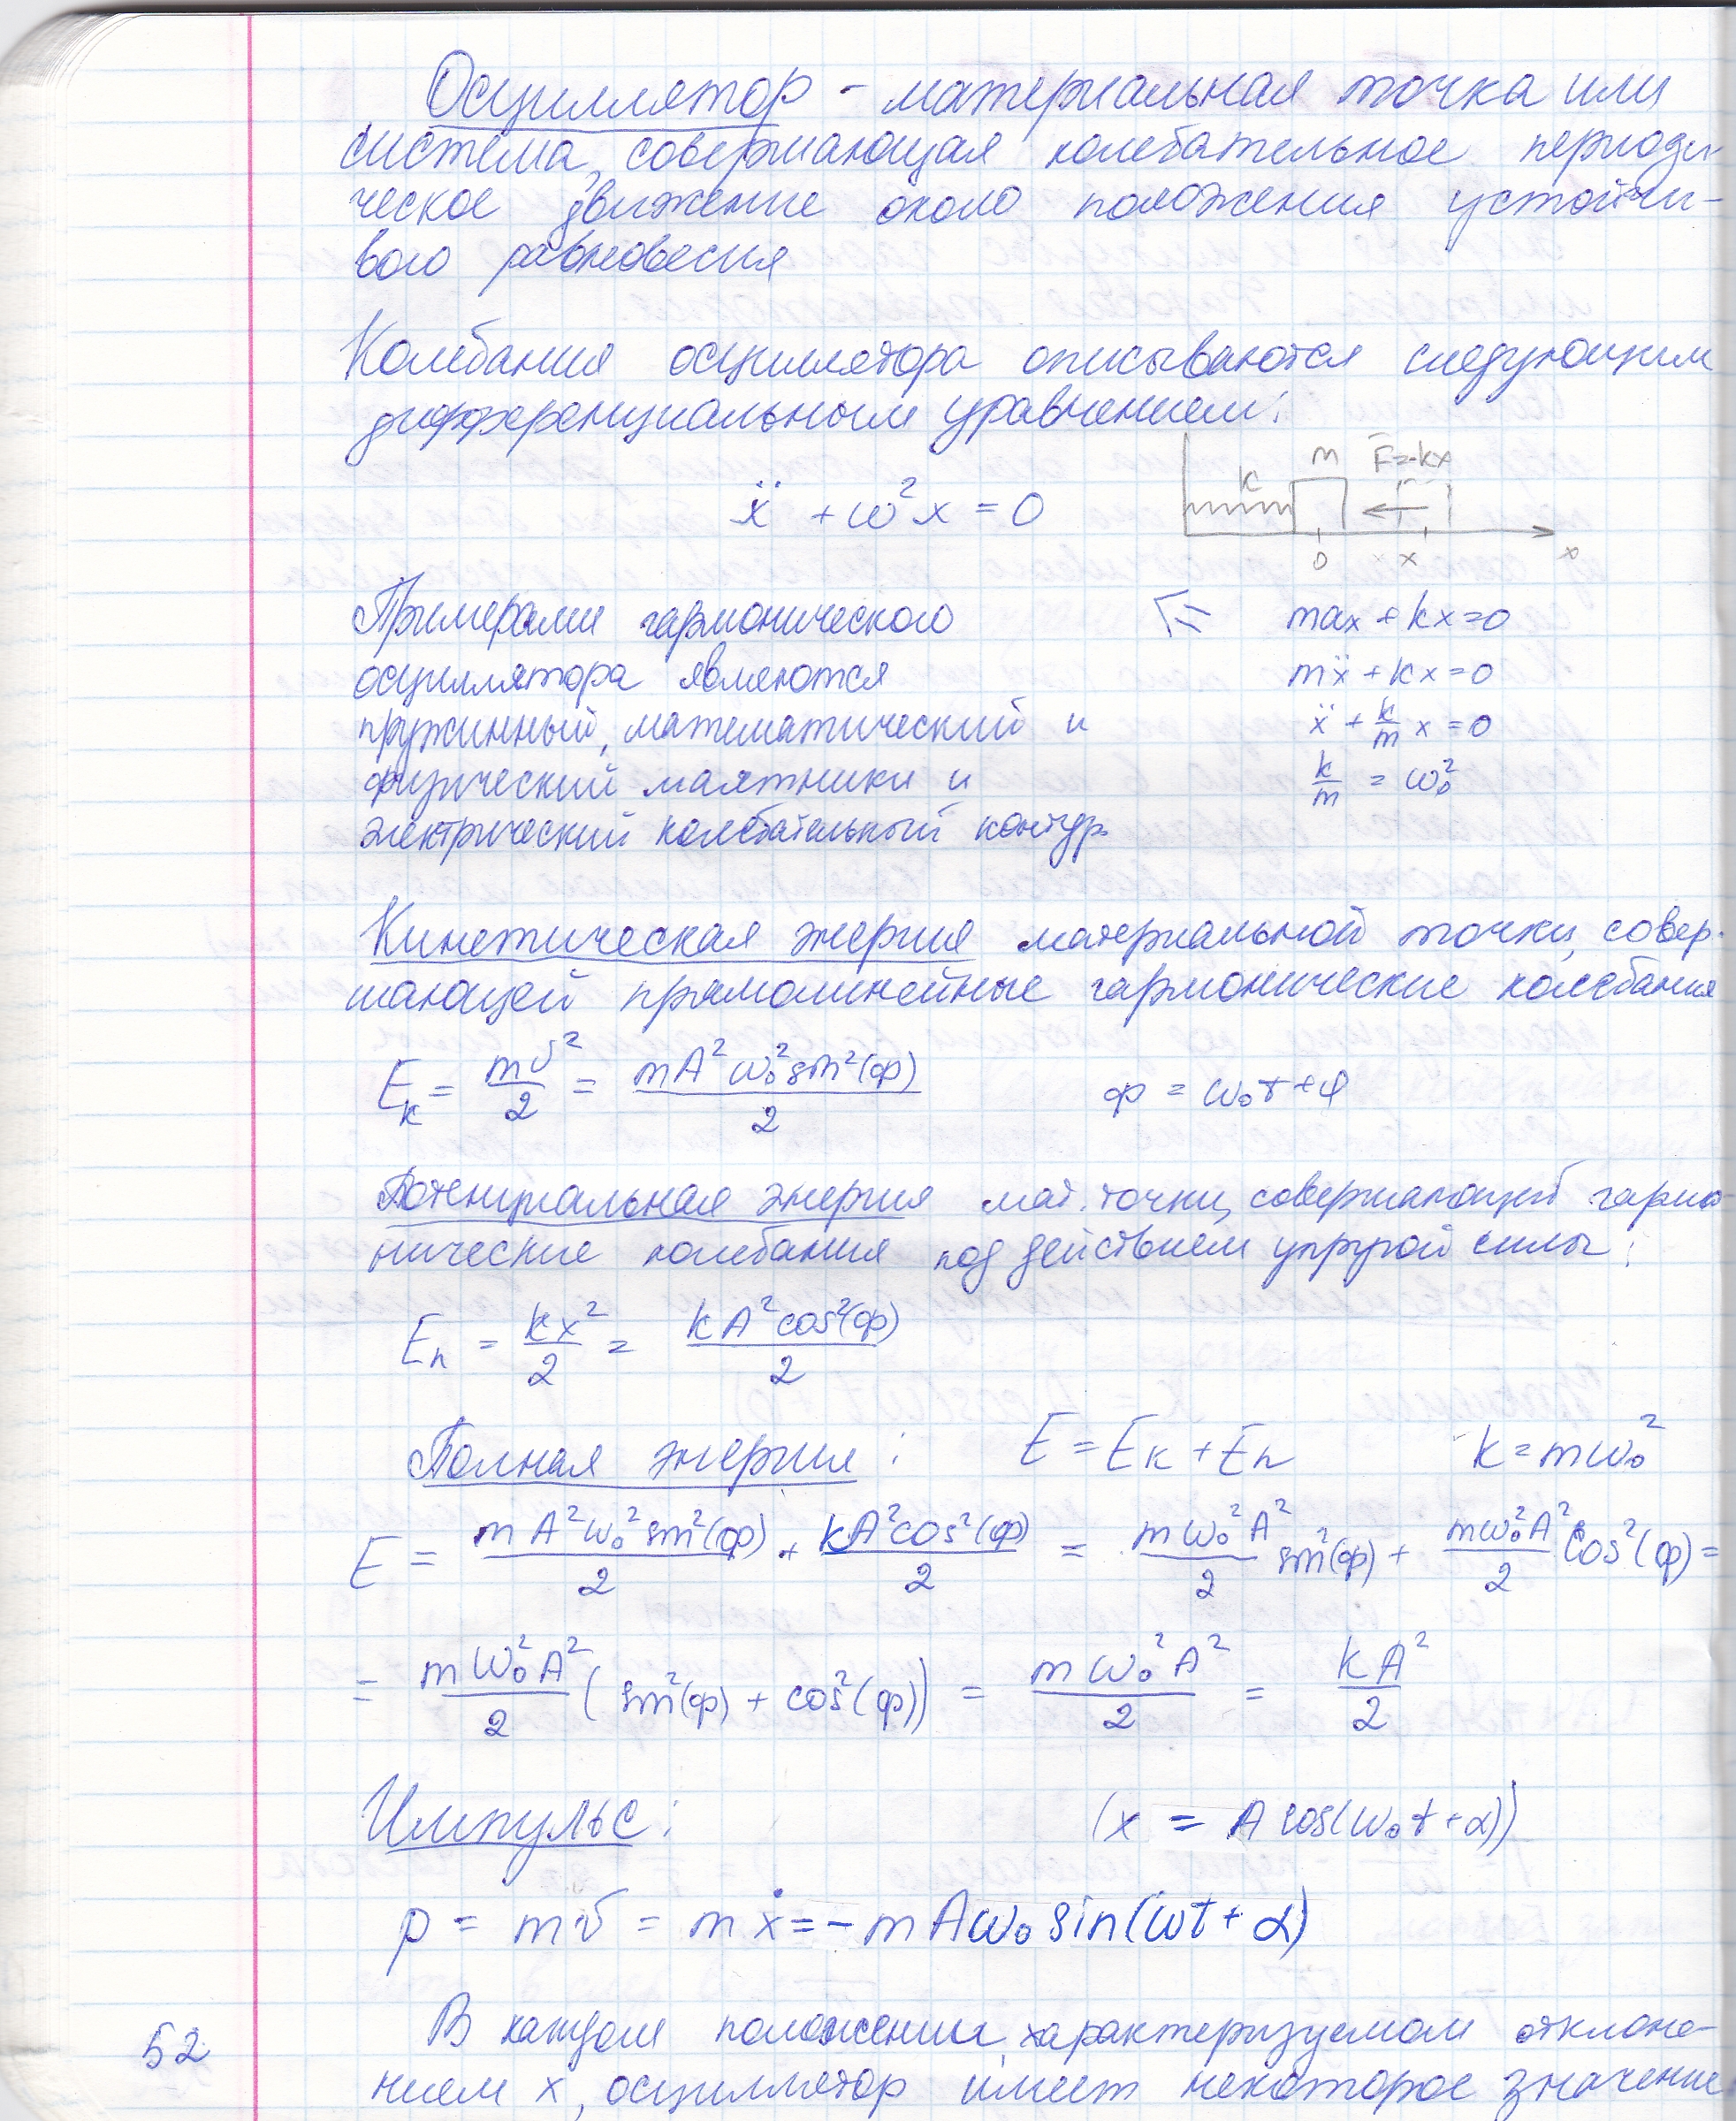 Осциллятор - материальная точка или
система, совершающая колебательное периоди-
ческое движение около положения устойчи-
вого равновесия
Колебания осциллятора описываются следующим
дифференциальным уравнением:
ẍ + ω²x = 0
k m F=-kx
0 x x
Примерами гармонического
осциллятора являются
пружинный, математический и
физический маятники и
электрический колебательный контур
max + kx = 0
mẍ + kx = 0
ẍ + k/m x = 0
k/m = ω₀²
Кинетическая энергия материальной точки, совер-
шающей прямолинейные гармонические колебания
Eк = mυ²/2 = mA²ω₀²sin²(ф)/2 ф = ω₀t+φ
Потенциальная энергия мат. точки, совершающей гармо-
нические колебания под действием упругой силы:
Eп = kx²/2 = kA²cos²(ф)/2
Полная энергия: E = Eк + Eп k = mω₀²
E = mA²ω₀²sin²(ф)/2 + kA²cos²(ф)/2 = mω₀²A²/2 sin²(ф) + mω₀²A²/2 cos²(ф) =
= mω₀²A²/2 (sin²(ф) + cos²(ф)) = mω₀²A²/2 = kA²/2
Импульс: (x = A cos(ω₀t+α))
p = mυ = mẋ = -mAω₀ sin(ωt+α)
В каждом положении, характеризуемом отклоне-
нием x, осциллятор имеет некоторое значение
52